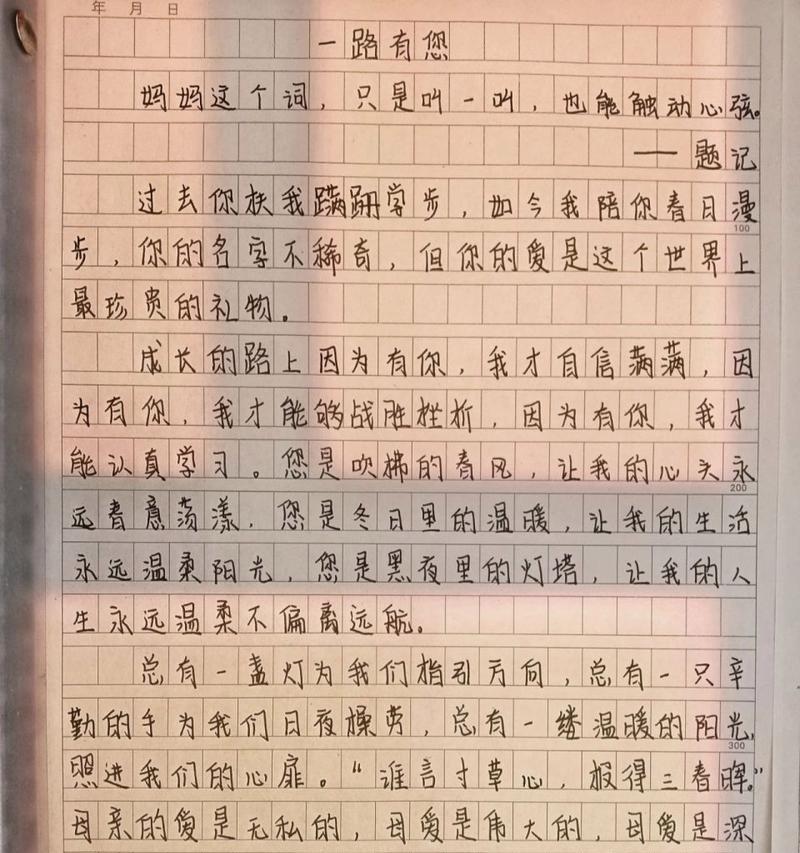 年 月 日
一路有您
妈妈这个词，只是叫一叫，也能触动心弦。
——题记
过去你扶我蹒跚学步，如今我陪你春日漫
100
步，你的名字不稀奇，但你的爱是这个世界上
最珍贵的礼物。
成长的路上因为有你，我才自信满满，因
为有你，我才能够战胜挫折，因为有你，我才
能认真学习。您是吹拂的春风，让我的心头永
200
远春意荡漾，您是冬日里的温暖，让我的生活
永远温柔阳光，您是黑夜里的灯塔，让我的人
生永远温柔不偏离远航。
总有一盏灯为我们指引方向，总有一只辛
勤的手为我们日夜操劳，总有一缕温暖的阳光，
300
照进我们的心扉。“谁言寸草心，报得三春晖。”
母亲的爱是无私的，母爱是伟大的，母爱是深